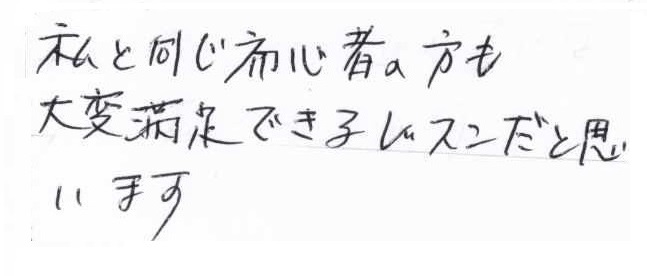 私と同じ初心者の方も
大変満足できるレッスンだと思
います